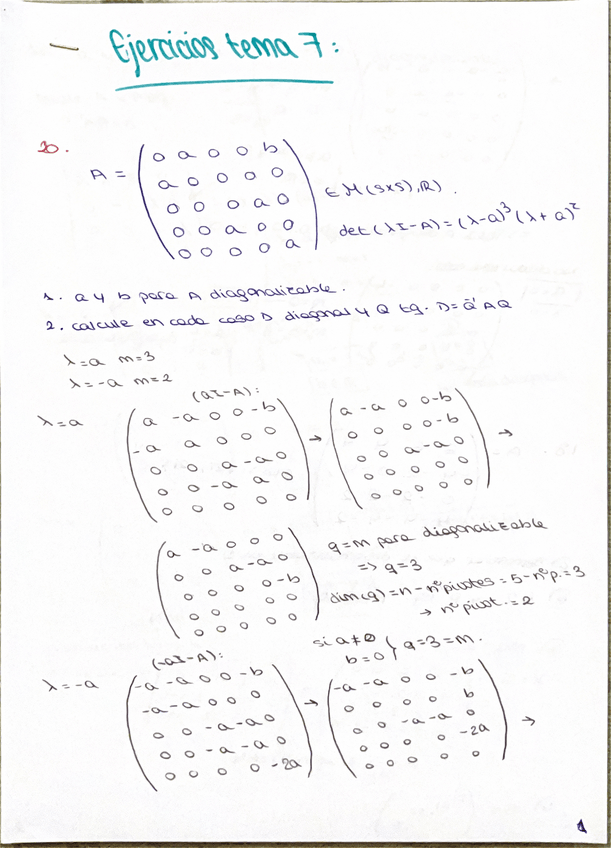 — Ejercicios tema 7:
20.
A = ( 0 a 0 0 b
a 0 0 0 0
0 0 0 a 0
0 0 a 0 0
0 0 0 0 a ) ∈ M(5x5), R).
det(λI-A) = (λ-a)³ (λ+a)²
1. a y b para A diagonalizable.
2. calcule en cada caso D diagonal y Q tq. D = Q⁻¹AQ
λ=a m=3
λ=-a m=2
λ=a
(aI-A):
( a -a 0 0 -b
-a a 0 0 0
0 0 a -a 0
0 0 -a a 0
0 0 0 0 0 ) →
( a -a 0 0 -b
0 0 0 0 -b
0 0 a -a 0
0 0 0 0 0
0 0 0 0 0 ) →
( a -a 0 0 0
0 0 a -a 0
0 0 0 0 -b
0 0 0 0 0
0 0 0 0 0 )
q=m para diagonalizable
=> q=3
dim(q)=n-nºpivotes=5-nºp.=3
→ nºpivot.=2
si a≠0
b=0 } q=3=m.
λ=-a
(-aI-A):
( -a -a 0 0 -b
-a -a 0 0 0
0 0 -a -a 0
0 0 -a -a 0
0 0 0 0 -2a ) →
( -a -a 0 0 -b
0 0 0 0 b
0 0 -a -a 0
0 0 0 0 -2a
0 0 0 0 0 ) →
1